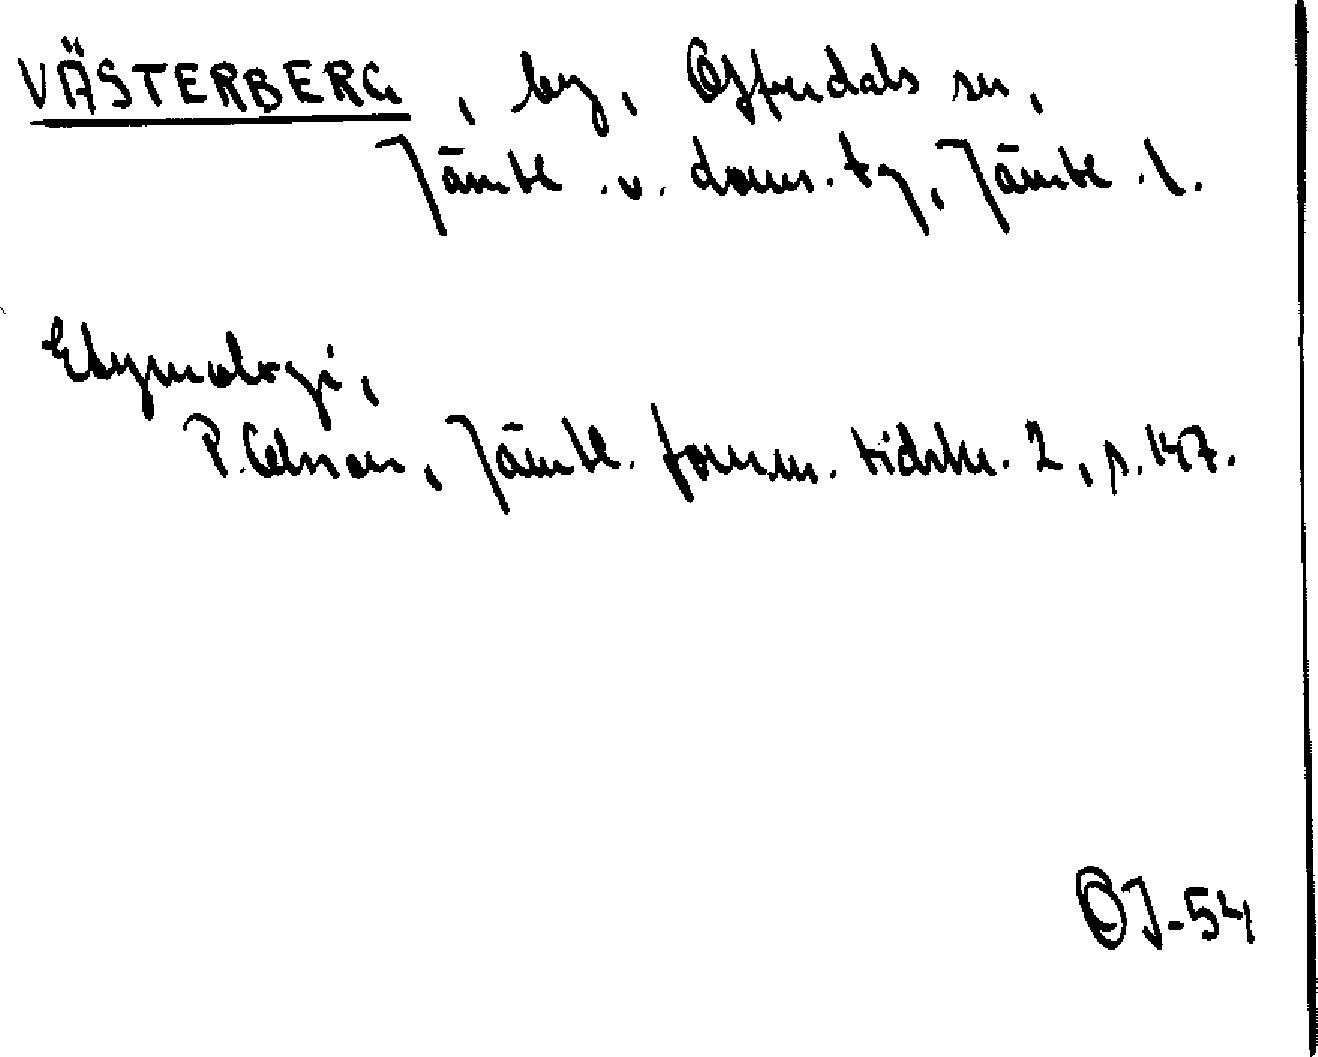 VÄSTERBERG, by, Offerdals sn,
Jämtl. v. doms. tg, Jämtl. l.
Etymologi,
P. Olsson, Jämtl. fornm. tidskr. 2, p. 147.
OJ-54